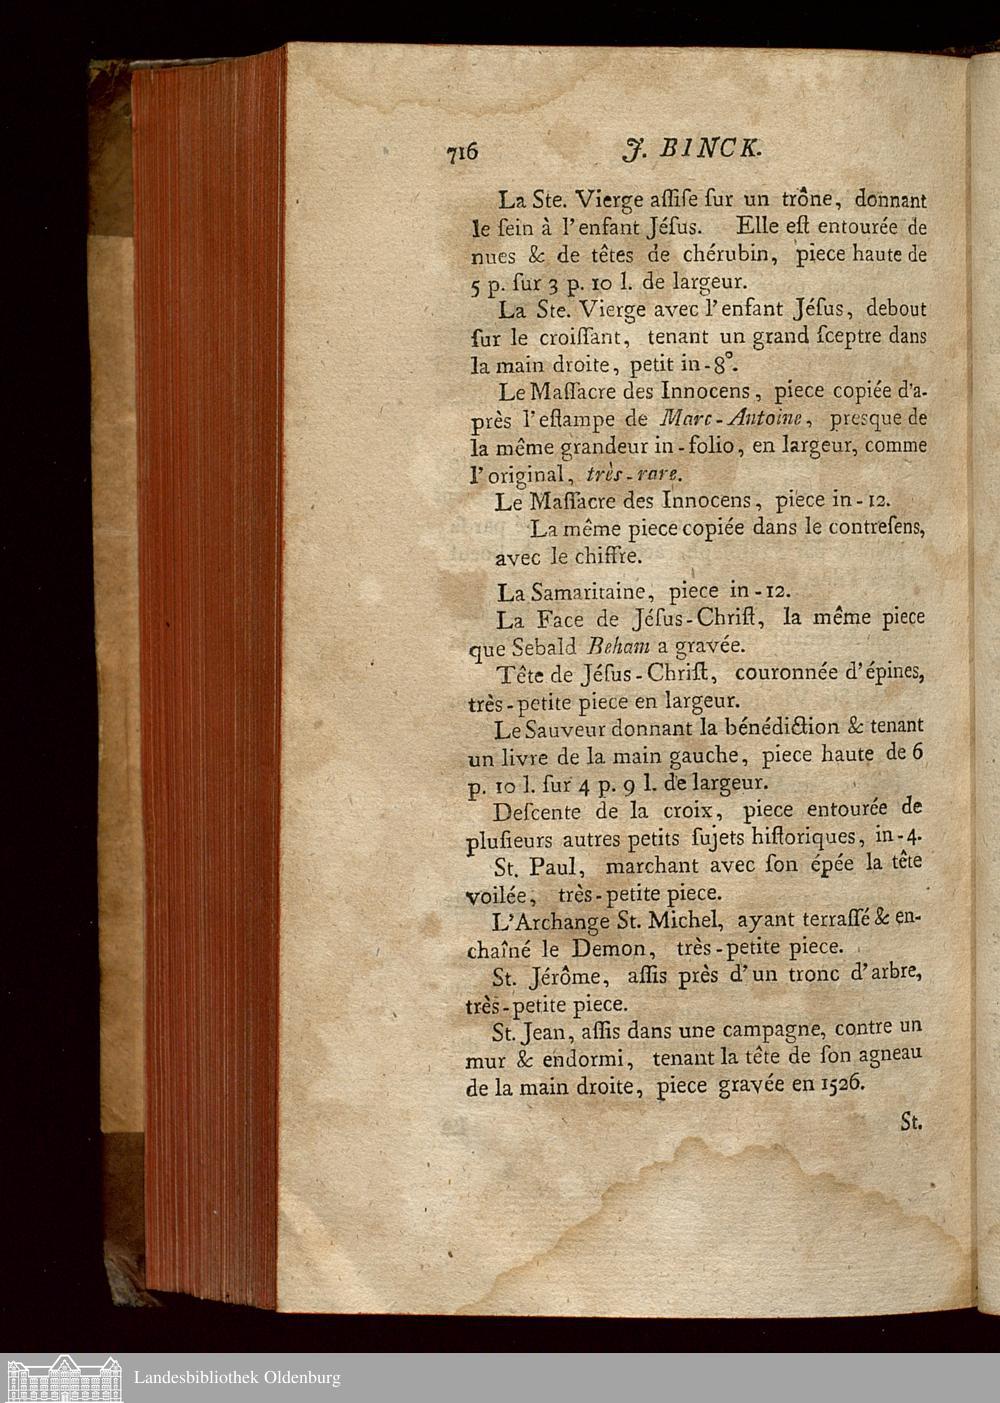 716 J. BINCK.
La Ste. Vierge aſſiſe ſur un trône, donnant
le ſein à l'enfant Jéſus. Elle eſt entourée de
nues & de têtes de chérubin, piece haute de
5 p. ſur 3 p. 10 l. de largeur.
La Ste. Vierge avec l'enfant Jéſus, debout
ſur le croiſſant, tenant un grand ſceptre dans
la main droite, petit in-8°.
Le Maſſacre des Innocens, piece copiée d'a-
près l'eſtampe de Marc-Antoine, presque de
la même grandeur in-folio, en largeur, comme
l'original, très-rare.
Le Maſſacre des Innocens, piece in-12.
La même piece copiée dans le contreſens,
avec le chiffre.
La Samaritaine, piece in-12.
La Face de Jéſus-Chriſt, la même piece
que Sebald Beham a gravée.
Tête de Jéſus-Chriſt, couronnée d'épines,
très-petite piece en largeur.
Le Sauveur donnant la bénédiction & tenant
un livre de la main gauche, piece haute de 6
p. 10 l. ſur 4 p. 9 l. de largeur.
Deſcente de la croix, piece entourée de
pluſieurs autres petits ſujets hiſtoriques, in-4.
St. Paul, marchant avec ſon épée la tête
voilée, très-petite piece.
L'Archange St. Michel, ayant terraſſé & en-
chaîné le Demon, très-petite piece.
St. Jérôme, aſſis près d'un tronc d'arbre,
très-petite piece.
St. Jean, aſſis dans une campagne, contre un
mur & endormi, tenant la tête de ſon agneau
de la main droite, piece gravée en 1526.
St.
Landesbibliothek Oldenburg